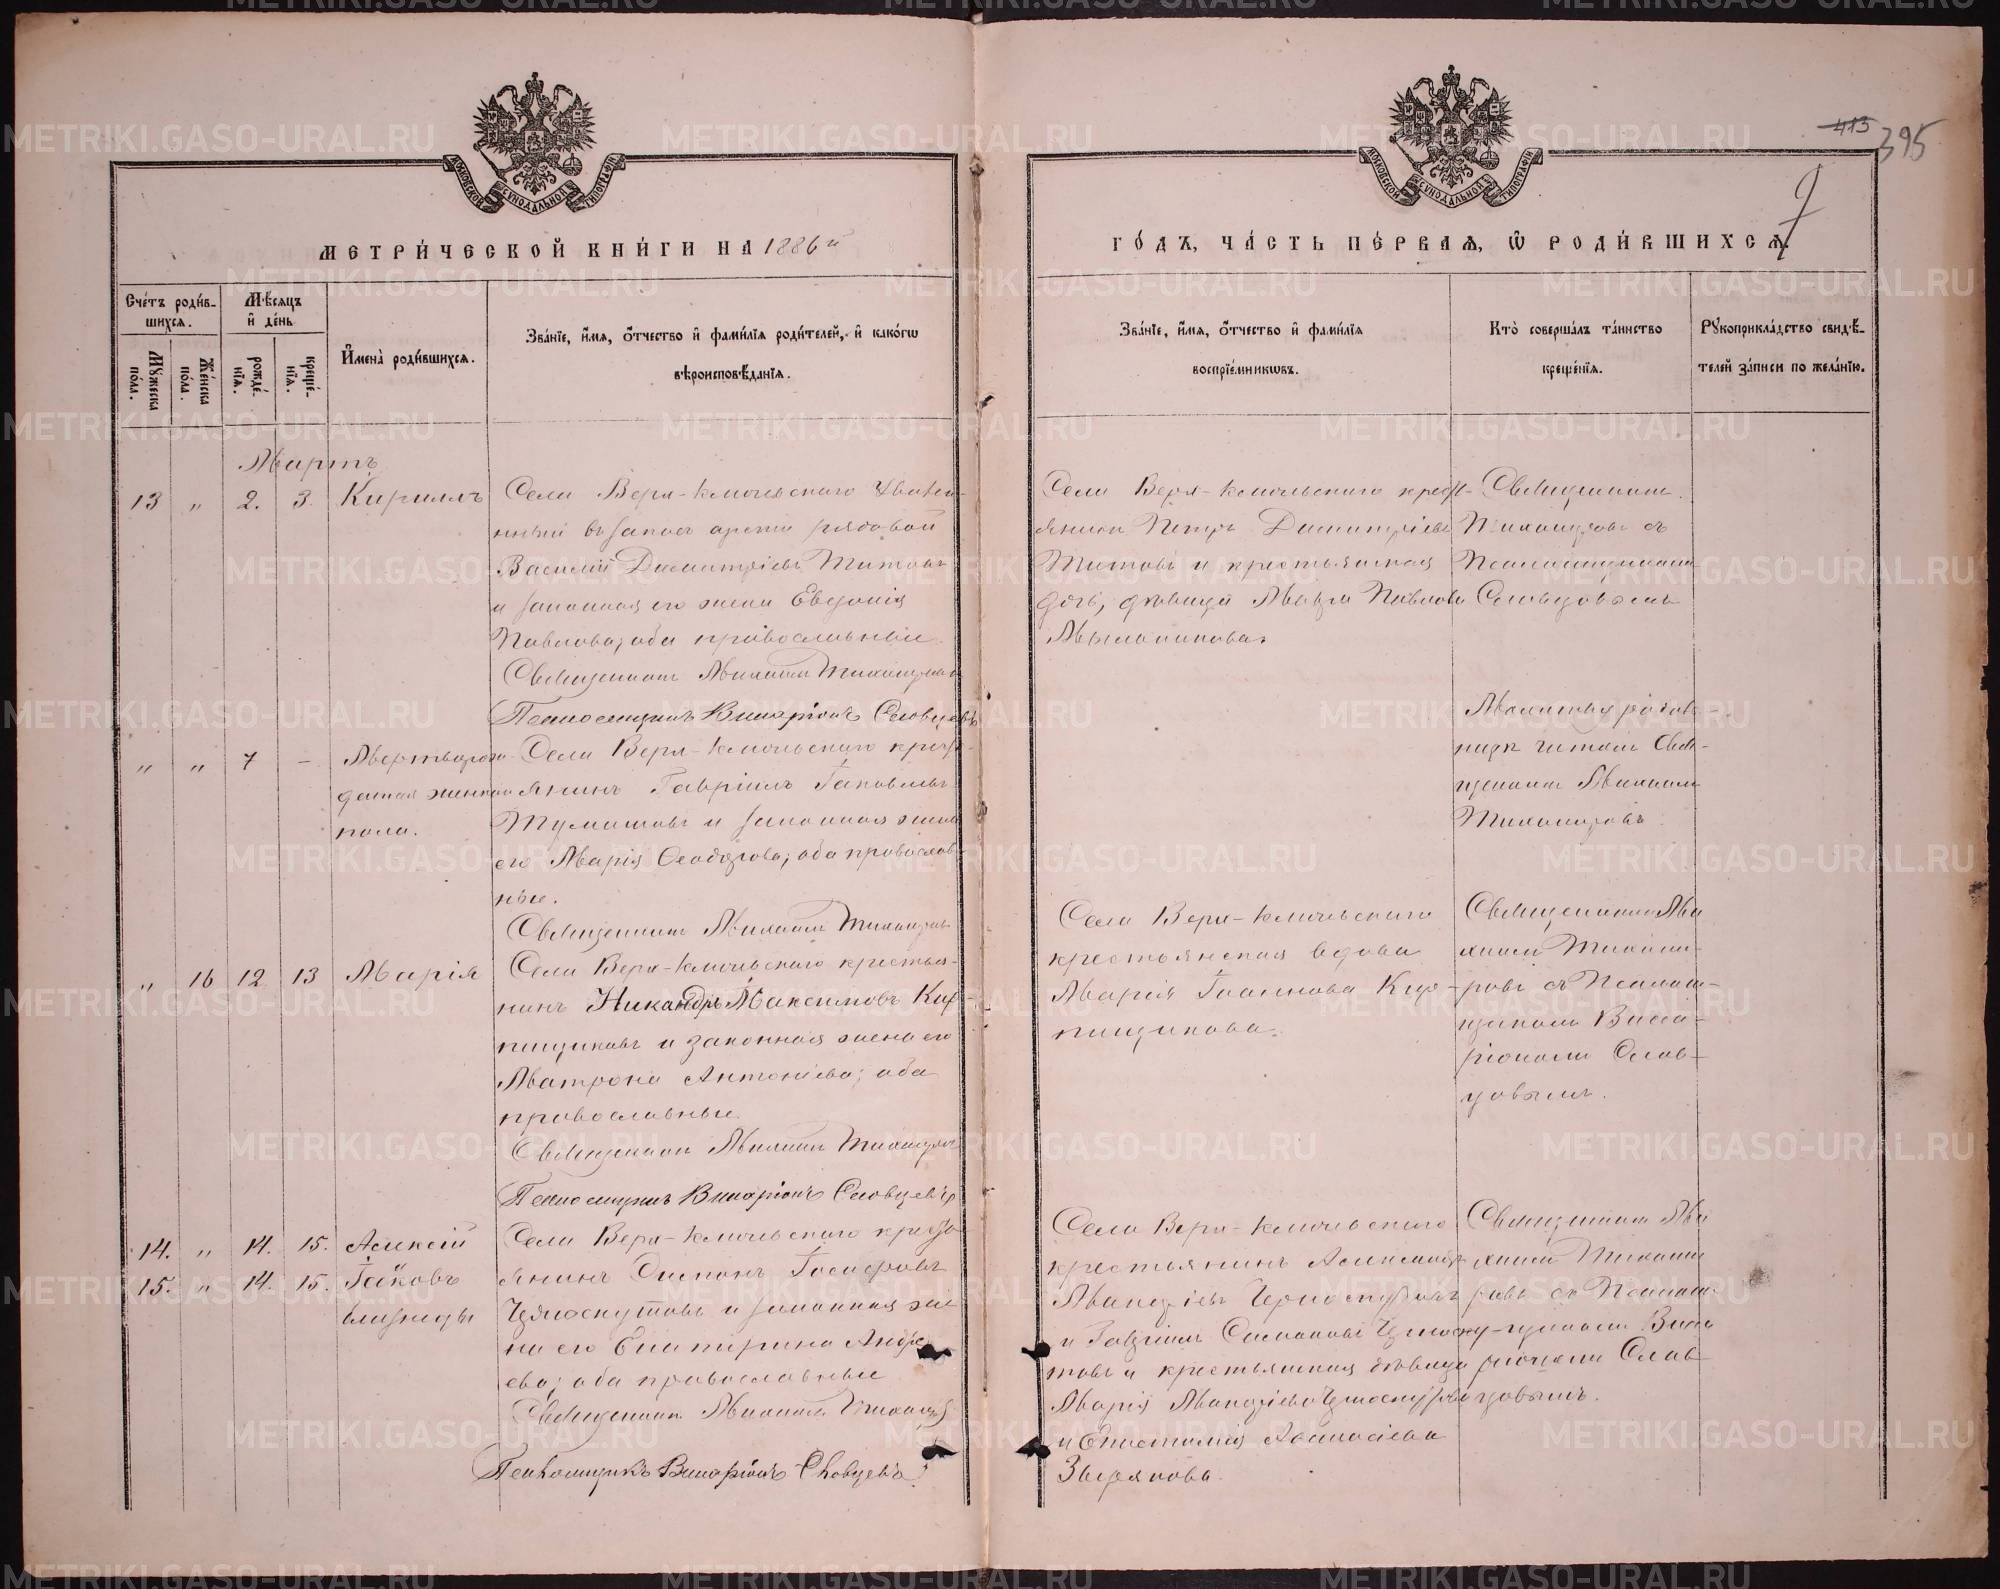 413 395
9
МЕТРИ́ЧЕСКОЙ КНИ́ГИ НА 1886й
ГО́ДЪ, ЧА́СТЬ ПЕ́РВАЯ, Ѿ РОДИ́ВШИХСЯ.
МОСКОВСКОЙ СѴНОДАЛЬНОЙ ТИПОГРАФІИ
МОСКОВСКОЙ СѴНОДАЛЬНОЙ ТИПОГРАФІИ
Сче́тъ роди́в-
шихся.
Му́жеска по́ла.
Же́нска по́ла.
Мѣ́сяцъ и де́нь
рожде́-нїя.
креще́-нїя.
И́мена роди́вшихся.
Зва́нїе, и́мя, о́тчество и фами́лїя роди́телей, и како́гѡ
вѣроисповѣ́данїя.
Зва́нїе, и́мя, о́тчество и фами́лїя
воспрїе́мникѡвъ.
Кто̀ соверша́лъ та́инство
креще́нїя.
Рукоприкла́дство свидѣ́-
телей за́писи по жела́нїю.
Мартъ
13 „ 2. 3. Кириллъ
Села Верх-Ключевскаго уволен-
ный въ запасъ армiи рядовой
Василий Димитрiевъ Титовъ
и законная его жена Евдокiя
Павлова; оба православные.
Священникъ Михаилъ Тихомировъ
Псаломщикъ Виссарiонъ Словцевъ
Села Верх-Ключевскаго крест-
янинъ Петръ Димитрiевъ
Титовъ и крестьянская
дочь, девица Павлова
Мыльникова.
Священникъ
Тихомировъ съ
Псаломщикомъ
Словцовымъ
„ „ 7 – Мертворож-
денная женскаго
пола.
Села Верх-Ключевскаго крест-
янинъ Гаврiилъ Iаковлевъ
и законная жена
его Марiя Феодорова; оба православ-
ные.
Священникъ Михаилъ Тихомировъ
Молитвы
читалъ Свя-
щенникъ Михаилъ
Тихомировъ.
„ 16 12 13 Марiя
Села Верх-Ключевскаго крестья-
нинъ Никандръ Максимовъ Кир-
пищиковъ и законная жена его
Матрона Антонiева; оба
православные.
Священникъ Михаилъ Тихомировъ
Псаломщикъ Виссарiонъ Словцевъ
Села Верх-Ключевскаго
крестьянская вдова
Марiя Iоаннова Кир-
пищикова.
Священникъ Ми-
хаилъ Тихоми-
ровъ съ Псалом-
щикомъ Висса-
рiономъ Слов-
цовымъ.
14. „ 14. 15. Алексiй
15. „ 14. 15. Iаковъ
близнецы
Села Верх-Ключевскаго кресть-
янинъ Симонъ Iосифовъ
Черноскутовъ и законная же-
на его Екатерина Андре-
ева; оба православные
Священникъ Михаилъ Тихомировъ
Псаломщикъ Виссарiонъ Словцевъ
Села Верх-Ключевскаго
крестьянинъ Александръ
Черноскутовъ
и Гаврiилъ Симоновъ Черноску-
товъ и крестьянская девица
Марiя Черноскутова
и Епистимiя Афанасiева
Зырянова.
Священникъ Ми-
хаилъ Тихоми-
ровъ съ Псалом-
щикомъ Висса-
рiономъ Слов-
цовымъ.